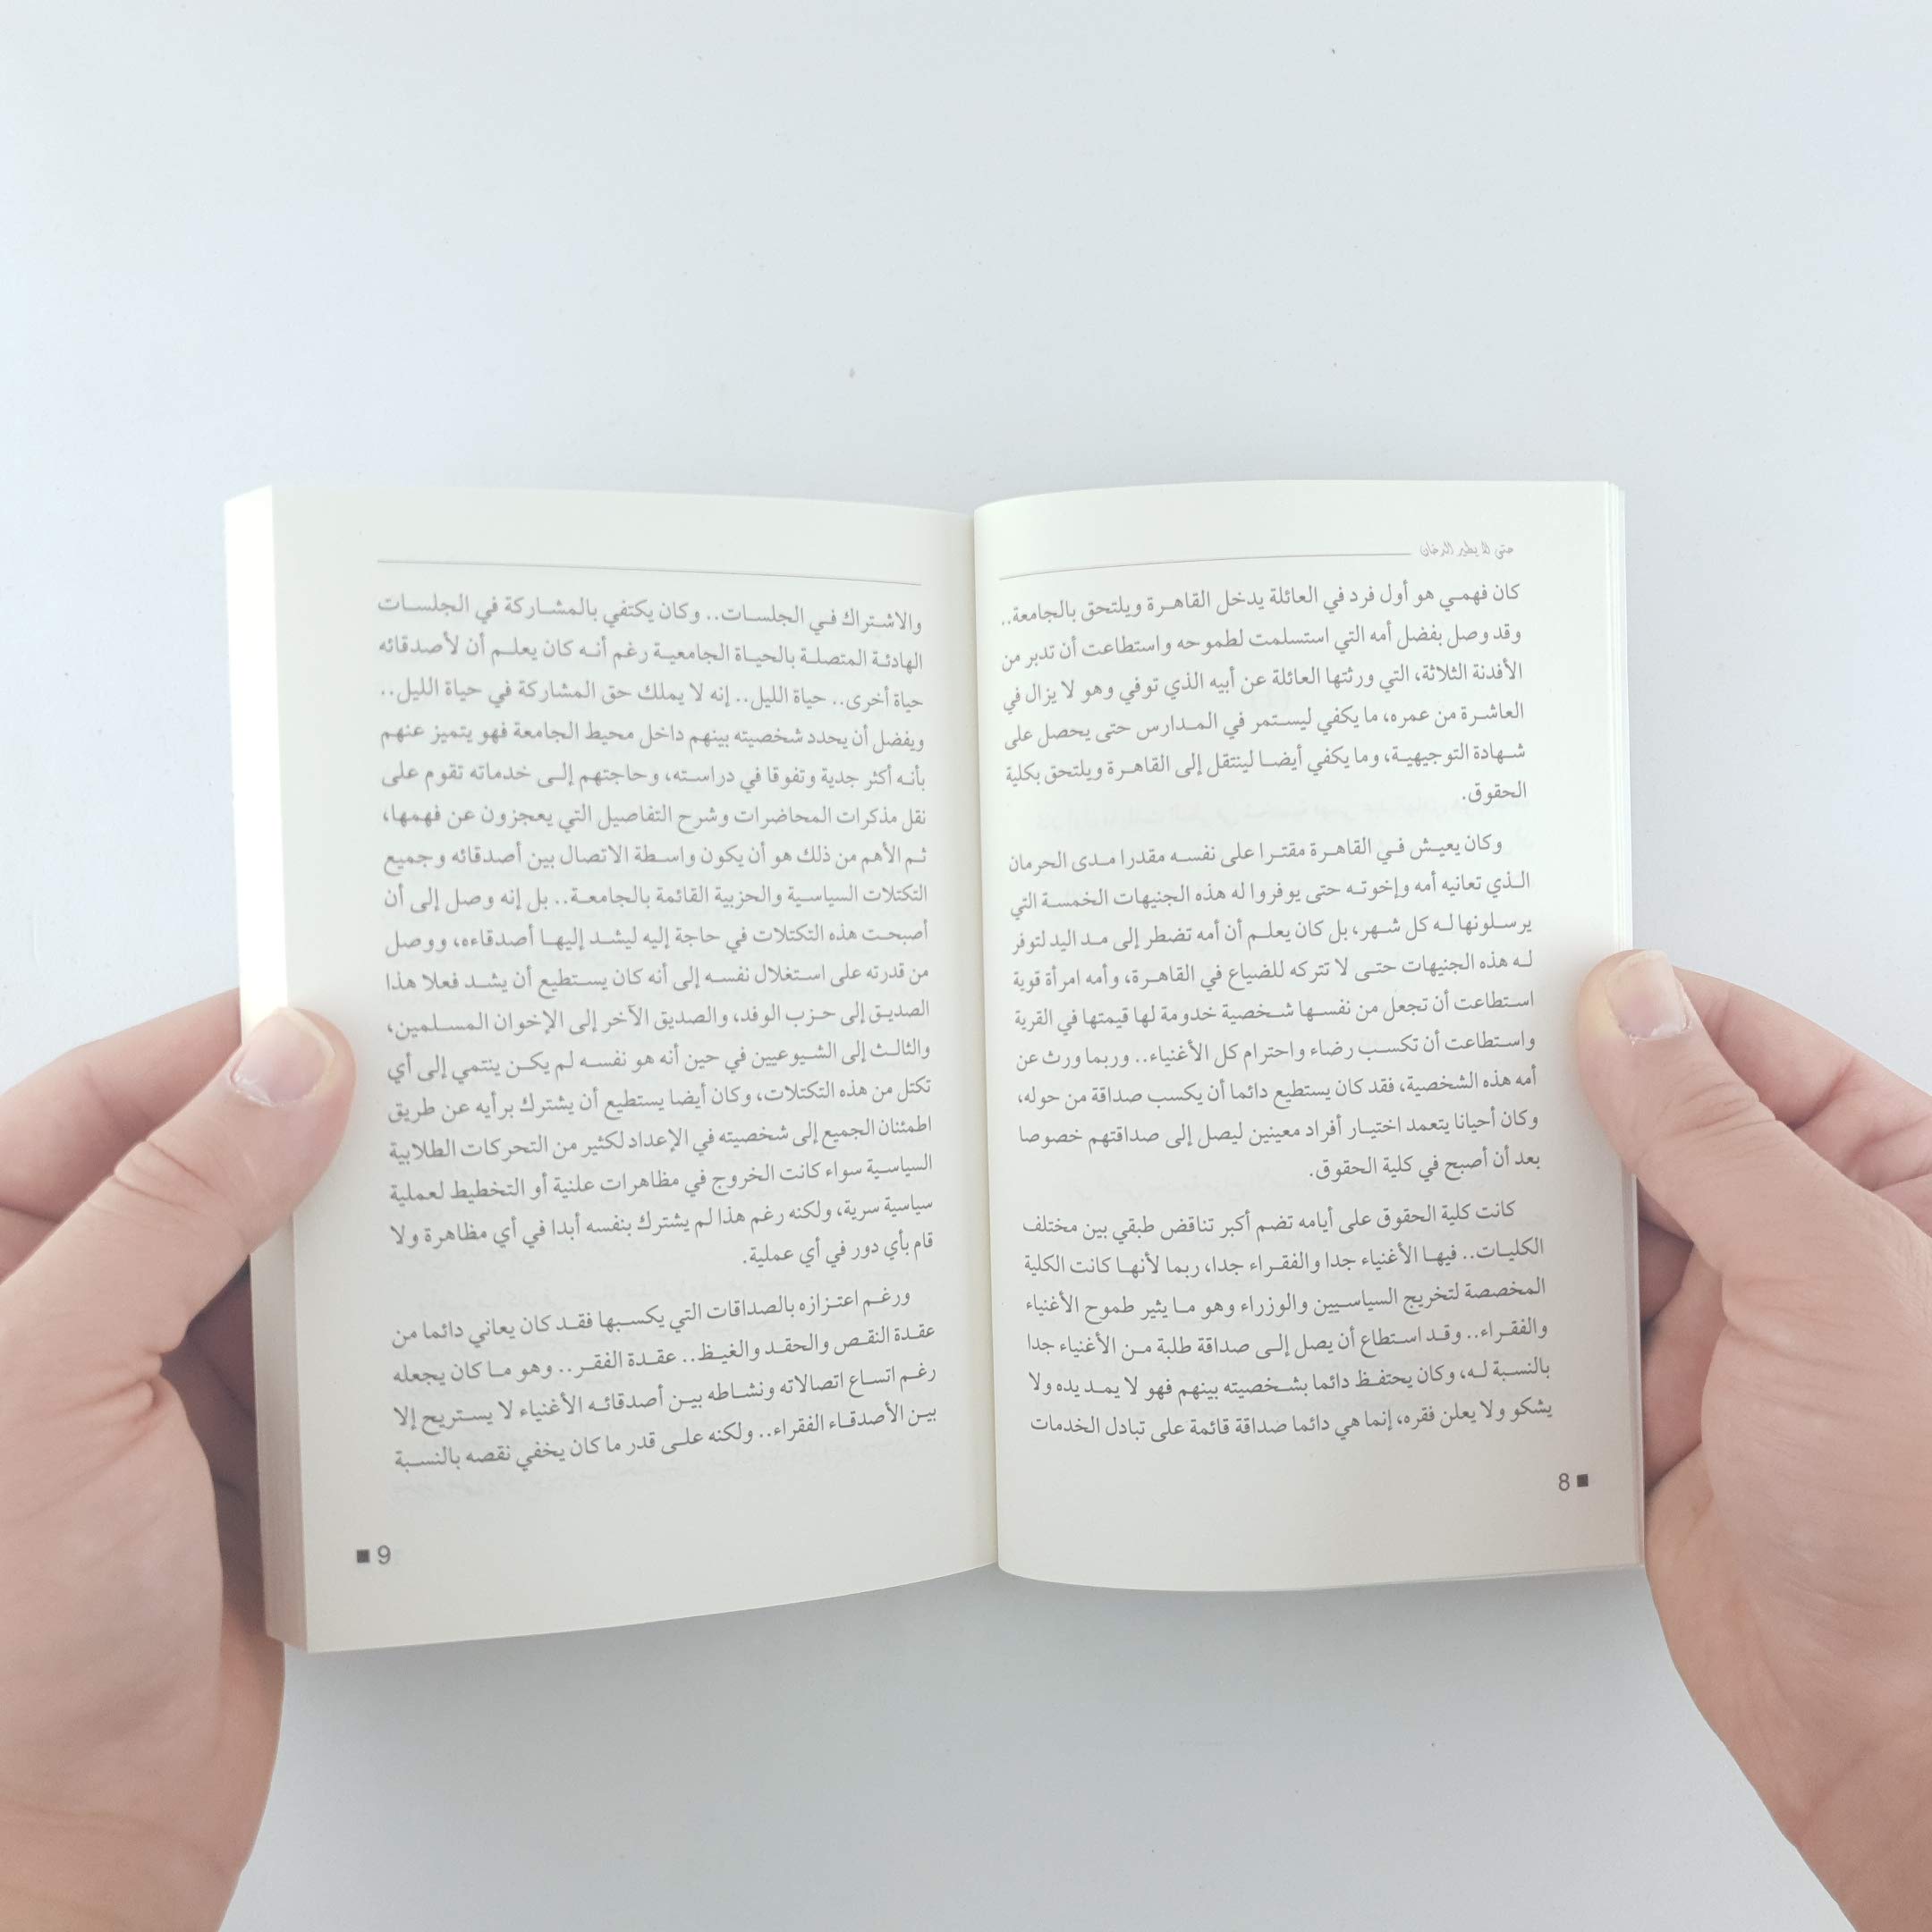 حتى لا يطير الدخان
كان فهمـي هو أول فرد في العائلة يدخل القاهـرة ويلتحق بالجامعة..
وقد وصل بفضل أمه التي استسلمت لطموحه واستطاعت أن تدبر من
الأفدنة الثلاثة، التي ورثتها العائلة عن أبيه الذي توفي وهو لا يزال في
العاشـرة من عمره، ما يكفي ليسـتمر في المـدارس حتى يحصل على
شـهادة التوجيهيـة، وما يكفي أيضـا لينتقل إلى القاهـرة ويلتحق بكلية
الحقوق.
وكان يعيـش فـي القاهـرة مقتـرا على نفسـه مقدرا مـدى الحرمان
الـذي تعانيه أمه وإخوتـه حتى يوفروا له هذه الجنيهات الخمسـة التي
يرسـلونها لـه كل شـهر، بل كان يعلـم أن أمه تضطر إلى مـد اليد لتوفر
لـه هذه الجنيهات حتـى لا تتركه للضياع في القاهـرة، وأمه امرأة قوية
اسـتطاعت أن تجعل من نفسـها شـخصية خدومة لها قيمتها في القرية
واسـتطاعت أن تكسـب رضاء واحترام كل الأغنياء.. وربما ورث عن
أمه هذه الشخصية، فقد كان يستطيع دائما أن يكسب صداقة من حوله،
وكان أحيانا يتعمد اختيـار أفراد معينين ليصل إلى صداقتهم خصوصا
بعد أن أصبح في كلية الحقوق.
كانت كلية الحقوق على أيامه تضم أكبر تناقض طبقي بين مختلف
الكليـات.. فيهـا الأغنياء جدا والفقـراء جدا، ربما لأنهـا كانت الكلية
المخصصة لتخريج السياسـيين والوزراء وهو مـا يثير طموح الأغنياء
والفقـراء.. وقـد اسـتطاع أن يصل إلـى صداقة طلبة مـن الأغنياء جدا
بالنسـبة لـه، وكان يحتفـظ دائما بشـخصيته بينهم فهو لا يمـد يده ولا
يشكو ولا يعلن فقره، إنما هي دائما صداقة قائمة على تبادل الخدمات
8
والاشـتراك فـي الجلسـات.. وكان يكتفي بالمشـاركة في الجلسـات
الهادئـة المتصلـة بالحيـاة الجامعيـة رغم أنـه كان يعلـم أن لأصدقائه
حياة أخرى.. حياة الليل.. إنه لا يملك حق المشاركة في حياة الليل..
ويفضل أن يحدد شخصيته بينهم داخل محيط الجامعة فهو يتميز عنهم
بأنـه أكثر جدية وتفوقا في دراسـته، وحاجتهم إلـى خدماته تقوم على
نقل مذكرات المحاضرات وشرح التفاصيل التي يعجزون عن فهمها،
ثـم الأهم من ذلك هو أن يكون واسـطة الاتصال بين أصدقائه وجميع
التكتلات السياسـية والحزبية القائمة بالجامعـة.. بل إنه وصل إلى أن
أصبحـت هذه التكتلات في حاجة إليه ليشـد إليهـا أصدقاءه، ووصل
من قدرته على اسـتغلال نفسـه إلى أنه كان يسـتطيع أن يشـد فعلا هذا
الصديـق إلى حـزب الوفد، والصديق الآخر إلى الإخوان المسـلمين،
والثالـث إلى الشـيوعيين في حين أنه هو نفسـه لم يكـن ينتمي إلى أي
تكتل من هذه التكتلات، وكان أيضا يستطيع أن يشترك برأيه عن طريق
اطمئنان الجميع إلى شخصيته في الإعداد لكثير من التحركات الطلابية
السياسـية سواء كانت الخروج في مظاهرات علنية أو التخطيط لعملية
سياسية سرية، ولكنه رغم هذا لم يشترك بنفسه أبدا في أي مظاهرة ولا
قام بأي دور في أي عملية.
ورغـم اعتـزازه بالصداقات التي يكسـبها فقـد كان يعاني دائما من
عقدة النقـص والحقـد والغيـظ.. عقـدة الفقـر.. وهو مـا كان يجعله
رغـم اتسـاع اتصالاته ونشـاطه بيـن أصدقائـه الأغنياء لا يسـتريح إلا
بيـن الأصدقـاء الفقراء.. ولكنه علـى قدر ما كان يخفي نقصه بالنسـبة
9